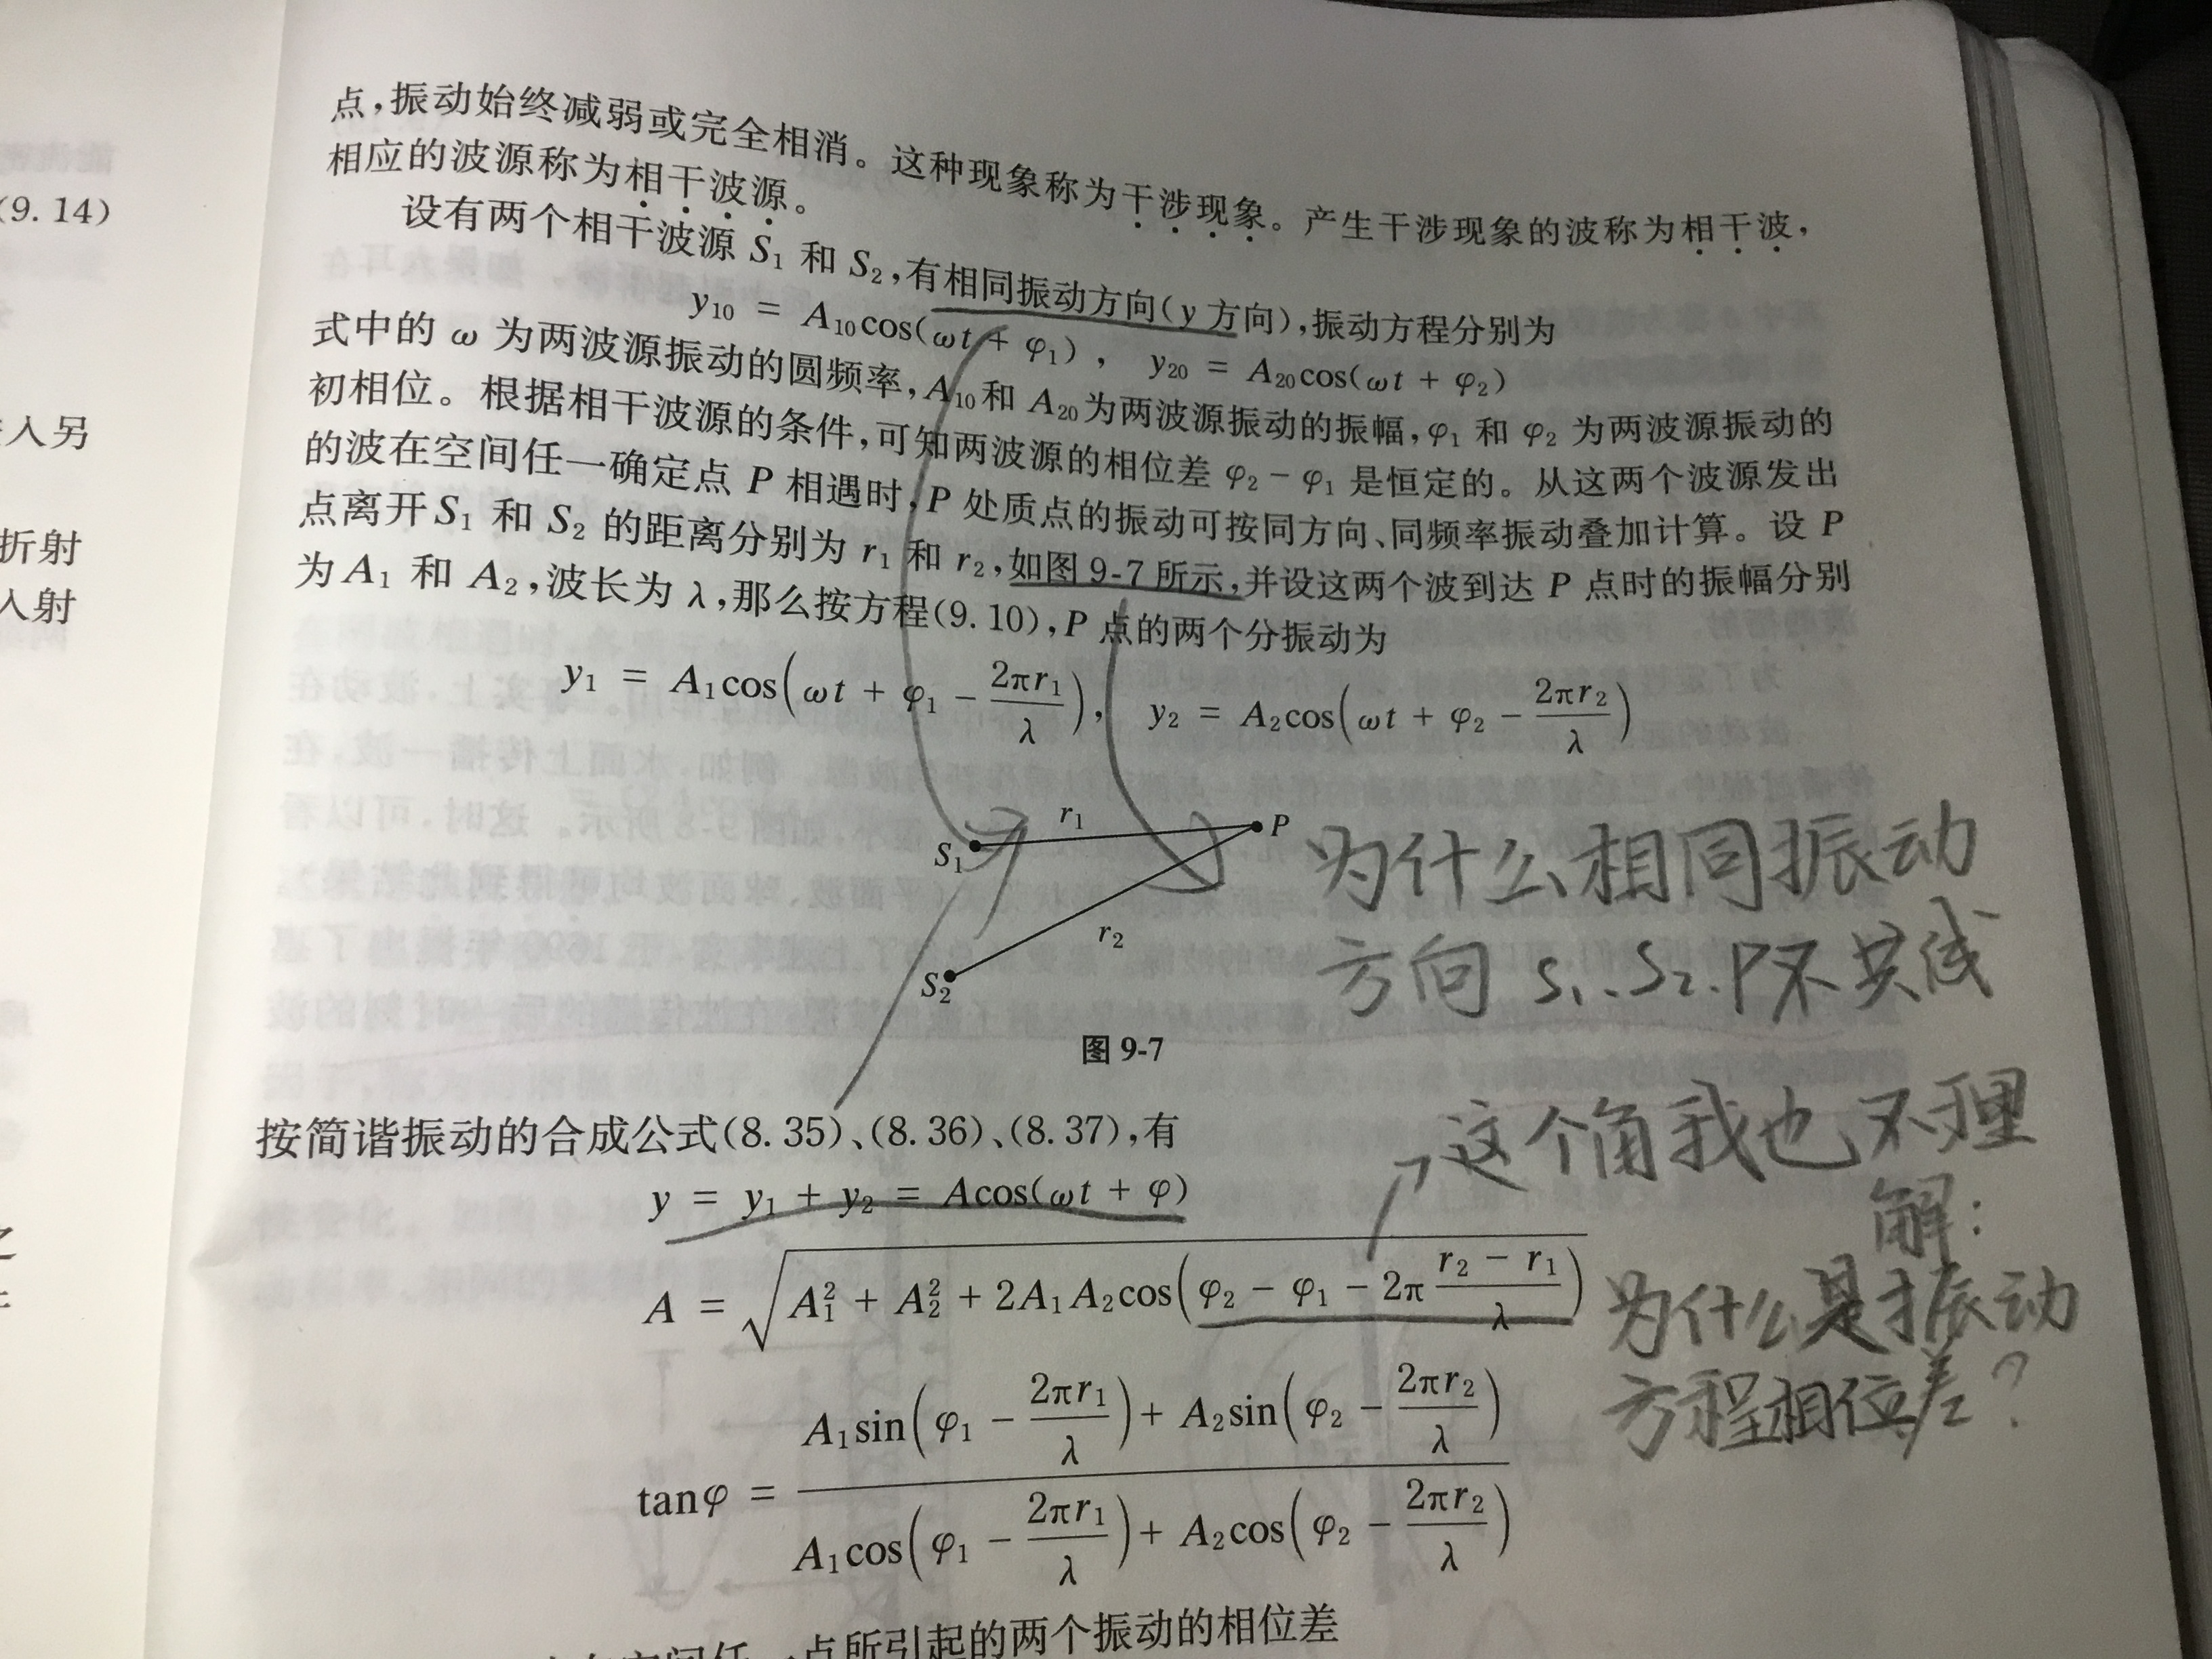 (9.14)
入另
折射
入射
点,振动始终减弱或完全相消。这种现象称为干涉现象。产生干涉现象的波称为相干波,
相应的波源称为相干波源。
设有两个相干波源 S₁ 和 S₂,有相同振动方向(y 方向),振动方程分别为
y₁₀ = A₁₀cos(ωt + φ₁) , y₂₀ = A₂₀cos(ωt + φ₂)
式中的 ω 为两波源振动的圆频率,A₁₀和 A₂₀为两波源振动的振幅,φ₁ 和 φ₂ 为两波源振动的
初相位。根据相干波源的条件,可知两波源的相位差 φ₂ − φ₁ 是恒定的。从这两个波源发出
的波在空间任一确定点 P 相遇时,P 处质点的振动可按同方向、同频率振动叠加计算。设 P
点离开 S₁ 和 S₂ 的距离分别为 r₁ 和 r₂,如图 9-7 所示,并设这两个波到达 P 点时的振幅分别
为 A₁ 和 A₂,波长为 λ,那么按方程(9.10),P 点的两个分振动为
y₁ = A₁cos(ωt + φ₁ − 2πr₁/λ), y₂ = A₂cos(ωt + φ₂ − 2πr₂/λ)
r₁
P
S₁
r₂
S₂
为什么相同振动
方向 S₁.S₂.P不共线
图 9-7
按简谐振动的合成公式(8.35)、(8.36)、(8.37),有
这个角我也不理
解:
y = y₁ + y₂ = Acos(ωt + φ)
A = √(A₁² + A₂² + 2A₁A₂cos(φ₂ − φ₁ − 2π (r₂ − r₁)/λ))
为什么是振动
方程相位差?
tanφ = (A₁sin(φ₁ − 2πr₁/λ) + A₂sin(φ₂ − 2πr₂/λ)) / (A₁cos(φ₁ − 2πr₁/λ) + A₂cos(φ₂ − 2πr₂/λ))
一点所引起的两个振动的相位差